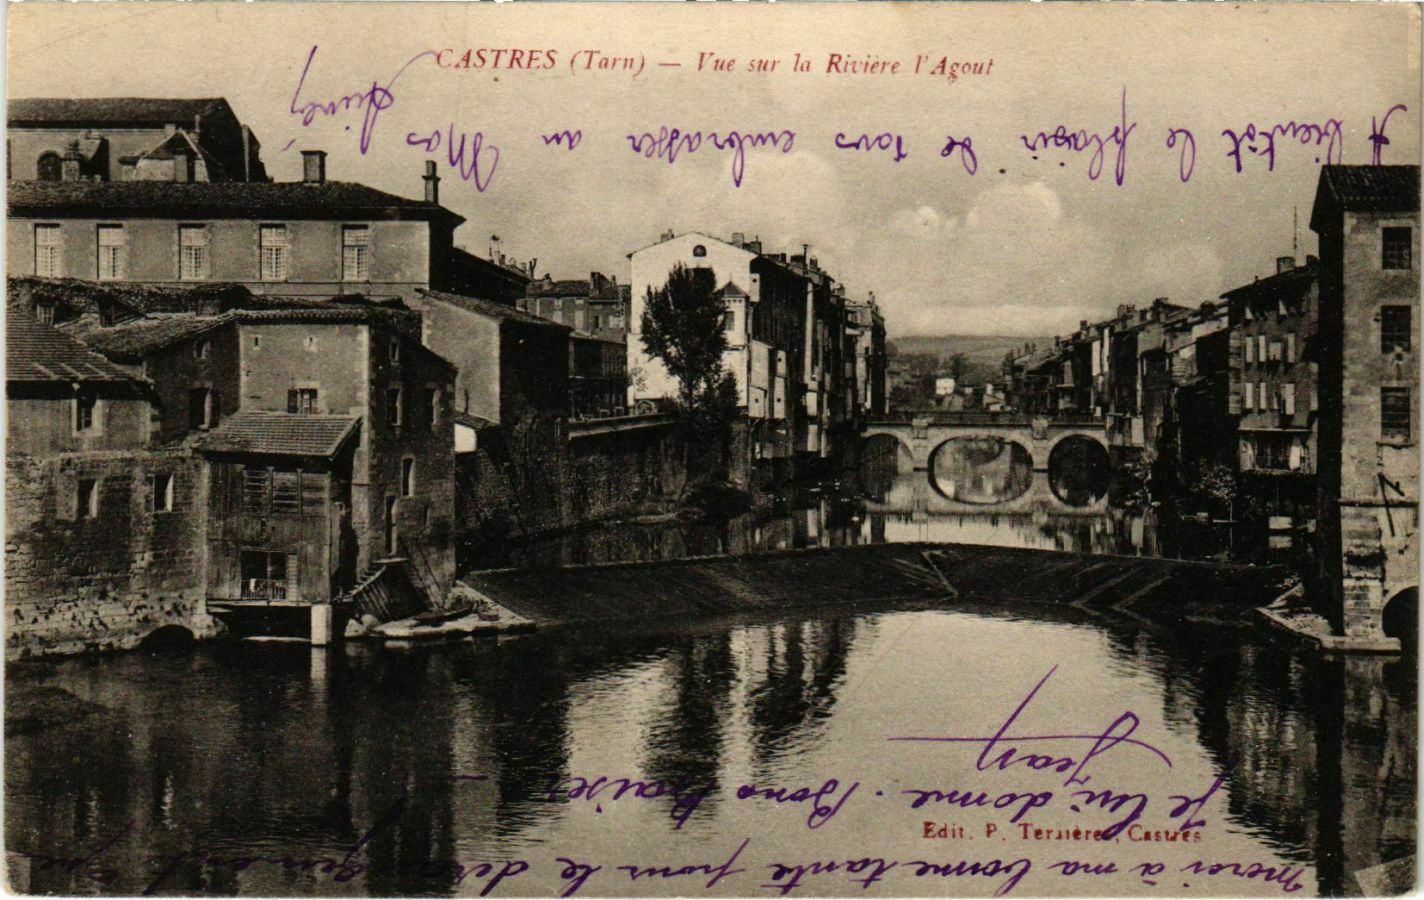 CASTRES (Tarn) — Vue sur la Rivière l'Agout
Merci à ma bonne tante pour le dérangement que
je lui donne. Bons baisers
Jean
A bientôt le plaisir de vous embrasser au Mas
Edit. P. Tersière, Castres